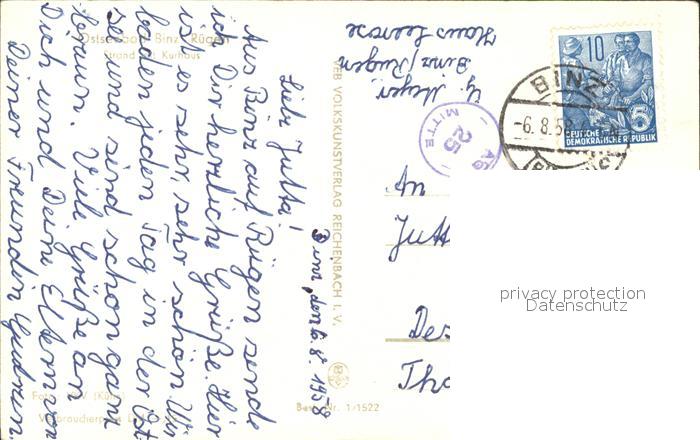 Binz, den 6.8.1958
Liebe Jutta!
Aus Binz auf Rügen sende
ich Dir herzliche Grüße. Hier
ist es sehr, sehr schön. Wir
baden jeden Tag in der Ost-
see und sind schon ganz
braun. Viele Grüße an
Dich und Deine Eltern von
Deiner Freundin Gudrun
Ostseebad Binz Rügen
Strand mit Kurhaus
VEB VOLKSKUNSTVERLAG REICHENBACH I. V.
Best.-Nr. 1/1522
Meyer
Binz/Rügen
Haus
MITTE
25
BINZ
-6.8.58
10
5
DEUTSCHE
DEMOKRATISCHE REPUBLIK
An
Jutt
De
Tho
privacy protection
Datenschutz